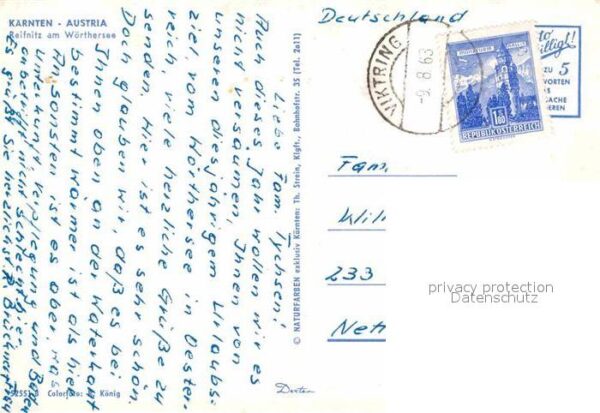 KÄRNTEN - AUSTRIA
Reifnitz am Wörthersee
Liebe Fam. Tychsen!
Auch dieses Jahr wollen wir es
nicht versäumen, Ihnen von
unserem diesjährigem Urlaubs-
ziel vom Wörthersee in Oester-
reich, viele herzliche Grüße zu
senden. Hier ist es sehr schön
Doch glauben wir, daß es bei
Ihnen oben an der Waterkant
bestimmt wärmer ist als hier
Ansonsten ist es aber, was
Unterkunft, Verpflegung und
anbetrifft nicht schlecht hier.
Es grüßt Sie herzlichst
Colorfoto: König
© NATURFARBEN exklusiv Kärnten: Th. Strein, Klgft., Bahnhofstr. 35 (Tel. 2611)
Deutschland
VIKTRING
-9.8.63
1.80
REPUBLIK ÖSTERREICH
ZU 5
WORTEN
Fam.
233
privacy protection
Datenschutz